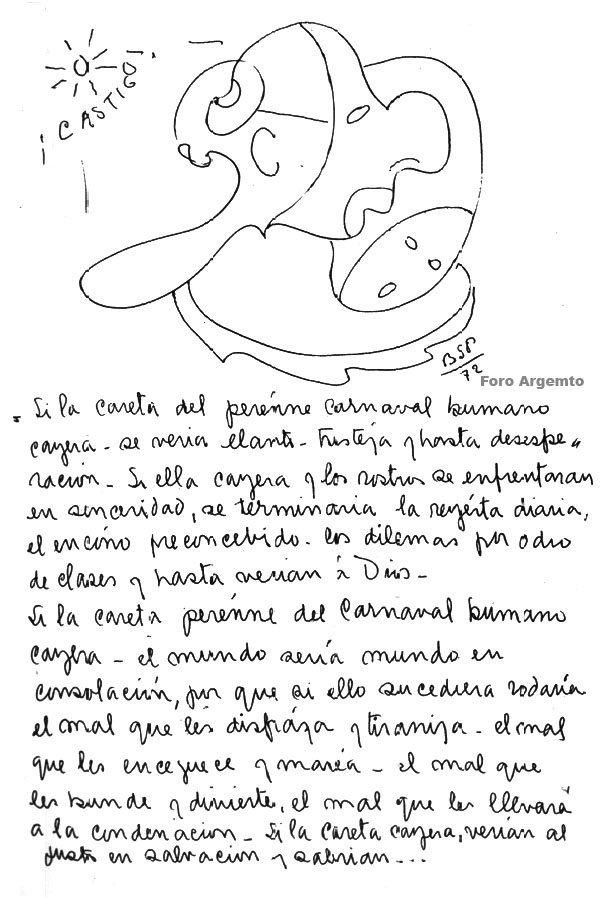 ¡CASTIGO.
BSP
72
Foro Argemto
Si la careta del perénne carnaval humano
cayera - se veria llanto - tristeza y hasta desespe„
ración - Si ella cayera y los rostros se enfrentaran
en sinceridad, se terminaria la reyérta diaria,
el encono preconcebido - los dilemas por odio
de clases y hasta verian à Dios -
Si la careta perénne del Carnaval humano
cayera - el mundo sería mundo en
consolación, por que si ello sucediera rodaría
el mal que les disfráza y tiraniza - el mal
que les enceguece y maréa - el mal que
les hunde y divierte, el mal que les llevará
a la condenacion - Si la careta cayera, verían al
Justo en salvacion y sabrian...